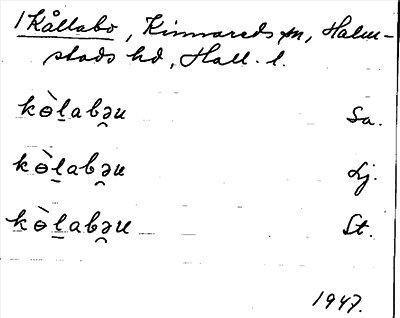 1 Kållabo, Kinnareds sn, Halm-
stads hd, Hall. l.
kɵ̀l̠abə̯n Sa.
kɵ̀l̠abə̯n Lj.
kɵ̀l̠abə̯n St.
1947.